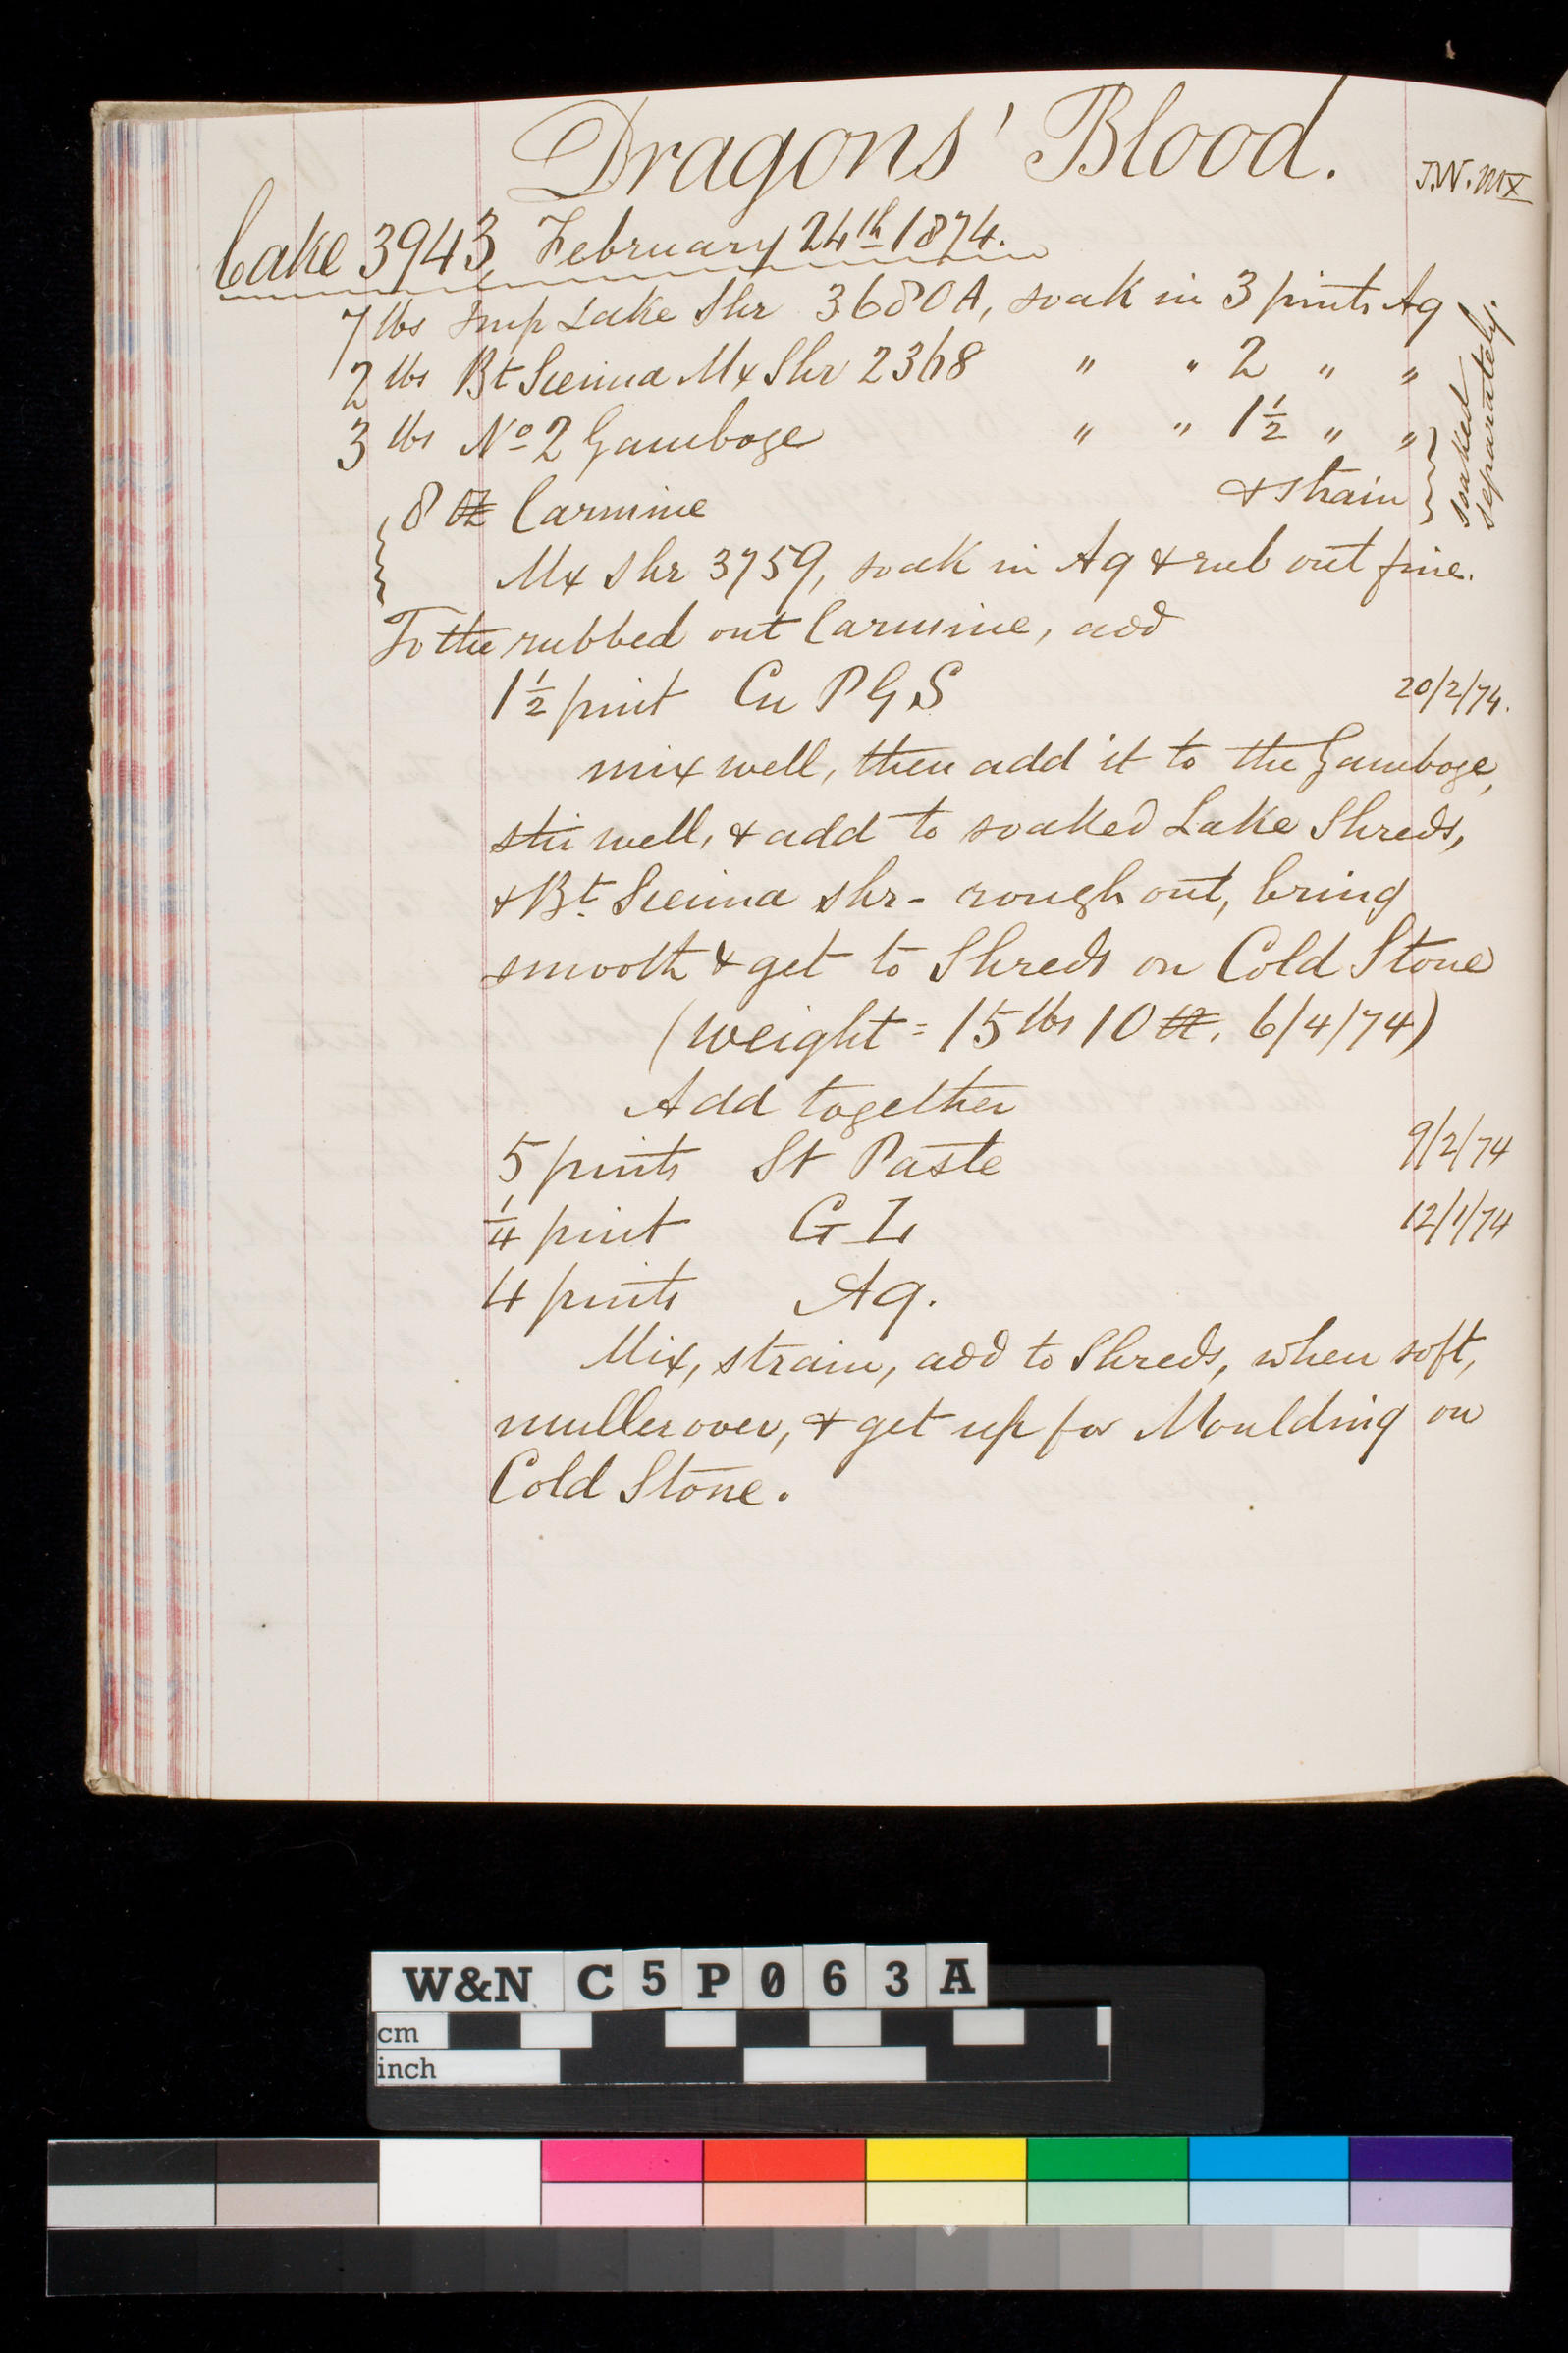 Dragons' Blood.
J.W. Mx
Cake 3943, February 24th 1874.
7 lbs Imp Lake Shr 3680A, soak in 3 pints Aq
2 lbs Bt Sienna Mx Shr 2368 " " 2 " "
3 lbs No 2 Gamboge " " 1½ " "
& strain
soaked separately.
8 oz Carmine
Mx Shr 3759, soak in Aq & rub out fine.
To the rubbed out Carmine, add
1½ pint Cu P G S 20/2/74.
mix well, then add it to the Gamboge,
stir well, & add to soaked Lake Shreds,
& Bt. Sienna shr - rough out, bring
smooth & get to Shreds on Cold Stone
(weight = 15 lbs 10 oz. 6/4/74)
Add together
5 pints St Paste 9/2/74
¼ pint G L 12/1/74
4 pints Aq.
Mix, strain, add to Shreds, when soft,
muller over, & get up for Moulding on
Cold Stone.
W&N C5P063A
cm
inch